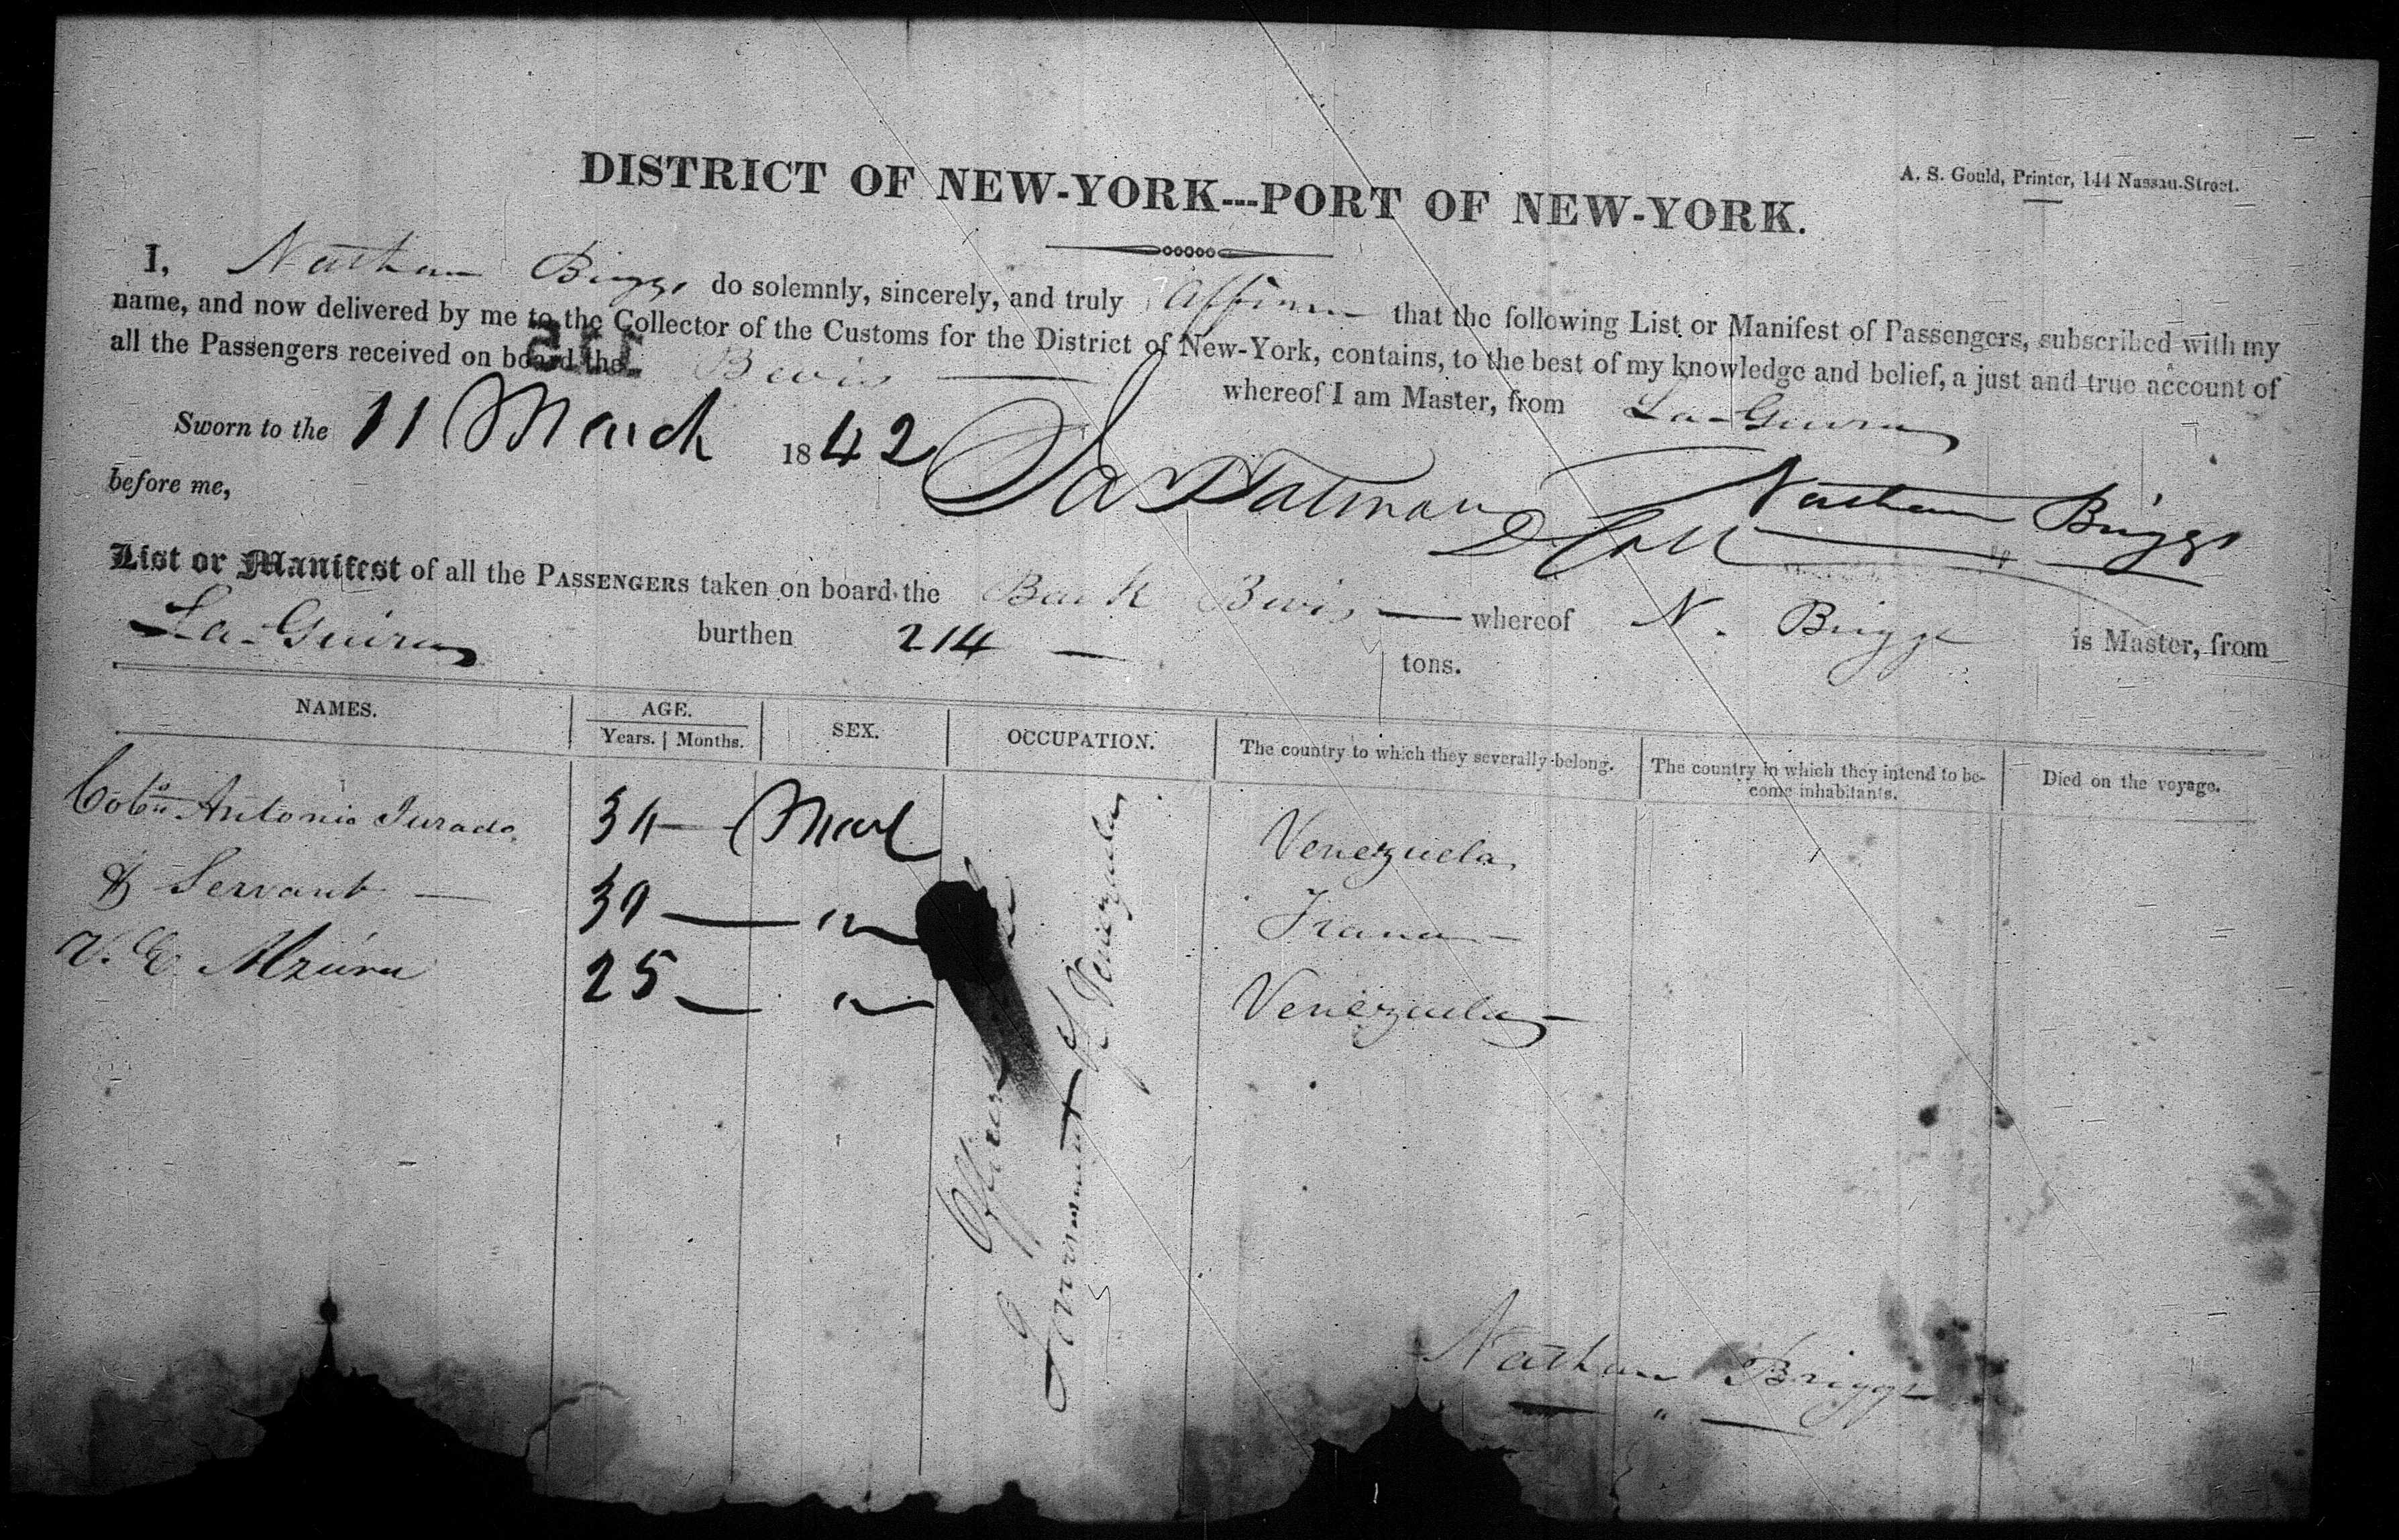 A. S. Gould, Printer, 144 Nassau-Street.
DISTRICT OF NEW-YORK---PORT OF NEW-YORK.
I, Nathan Briggs do solemnly, sincerely, and truly affirm that the following List or Manifest of Passengers, subscribed with my
name, and now delivered by me to the Collector of the Customs for the District of New-York, contains, to the best of my knowledge and belief, a just and true account of
all the Passengers received on board the Bevis whereof I am Master, from La-Guira
Sworn to the 11 March 1842
before me,
Nathan Briggs
List or Manifest of all the PASSENGERS taken on board the Bark Bevis whereof N. Briggs is Master, from
La-Guira burthen 214 tons.
NAMES. AGE. Years. | Months. SEX. OCCUPATION. The country to which they severally belong. The country in which they intend to become inhabitants. Died on the voyage.
Antonio Jurado 34 Mal Venezuela
& Servant 30 France
25 Venezuela
Officers
Government of Venezuela
Nathan Briggs